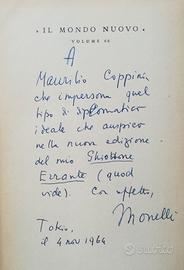 * IL MONDO NUOVO *
VOLUME 66
A
Maurilio Coppini
che impersona quel
tipo di diplomatico
ideale che auspico
nella nuova edizione
del mio Ghiottone
Errante (quod
vide). Con affetto,
Monelli
Tokio,
il 4 nov 1964
subito.it